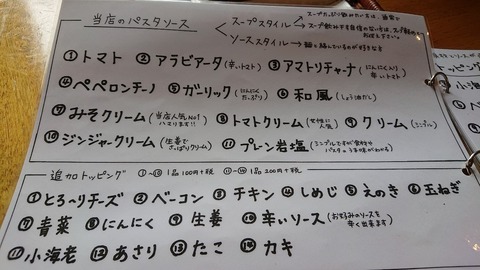 当店のパスタソース
スープスタイル
スープ飲み干す自信のない方は
ソーススタイル → 麺と絡んでいるのが好きな方
① トマト ② アラビアータ (辛いトマト) ③ アマトリチャーナ (にんにく入り辛いトマト)
④ ペペロンチーノ ⑤ ガーリック (にんにくたっぷり) ⑥ 和風 (しょう油だし)
⑦ みそクリーム (当店人気No.1 ハマります!!) ⑧ トマトクリーム (女性に人気) ⑨ クリーム (シンプル)
⑩ ジンジャークリーム (生姜でさっぱりクリーム) ⑪ プレーン岩塩 (シンプルですが食材やパスタのうま味がわかる)
追加トッピング ①〜⑩ 1品 100円+税 ⑪〜⑭ 1品 200円+税
① とろ〜りチーズ ② ベーコン ③ チキン ④ しめじ ⑤ えのき ⑥ 玉ねぎ
⑦ 青菜 ⑧ にんにく ⑨ 生姜 ⑩ 辛いソース (お好みのソースを辛く出来ます)
⑪ 小海老 ⑫ あさり ⑬ たこ ⑭ カキ